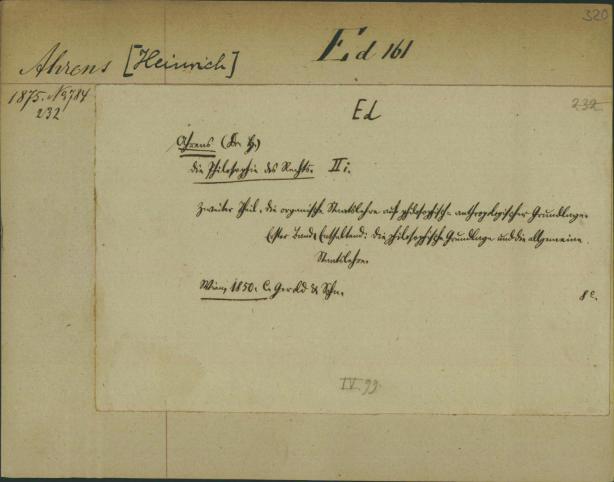 320
Ahrens [Heinrich]
Ed 161
1875. No 9784
232
Ed
232
Ahrens (Dr. H.)
Die Philosophie des Rechts. II i.
Zweiter Theil. Die organische Staatslehre auf philosophisch-anthropologischer Grundlage.
Erster Band, Enthaltend: Die philosophische Grundlage und die allgemeine
Staatslehre.
Wien, 1850. C. Gerold & Sohn.
8º.
IV. 99